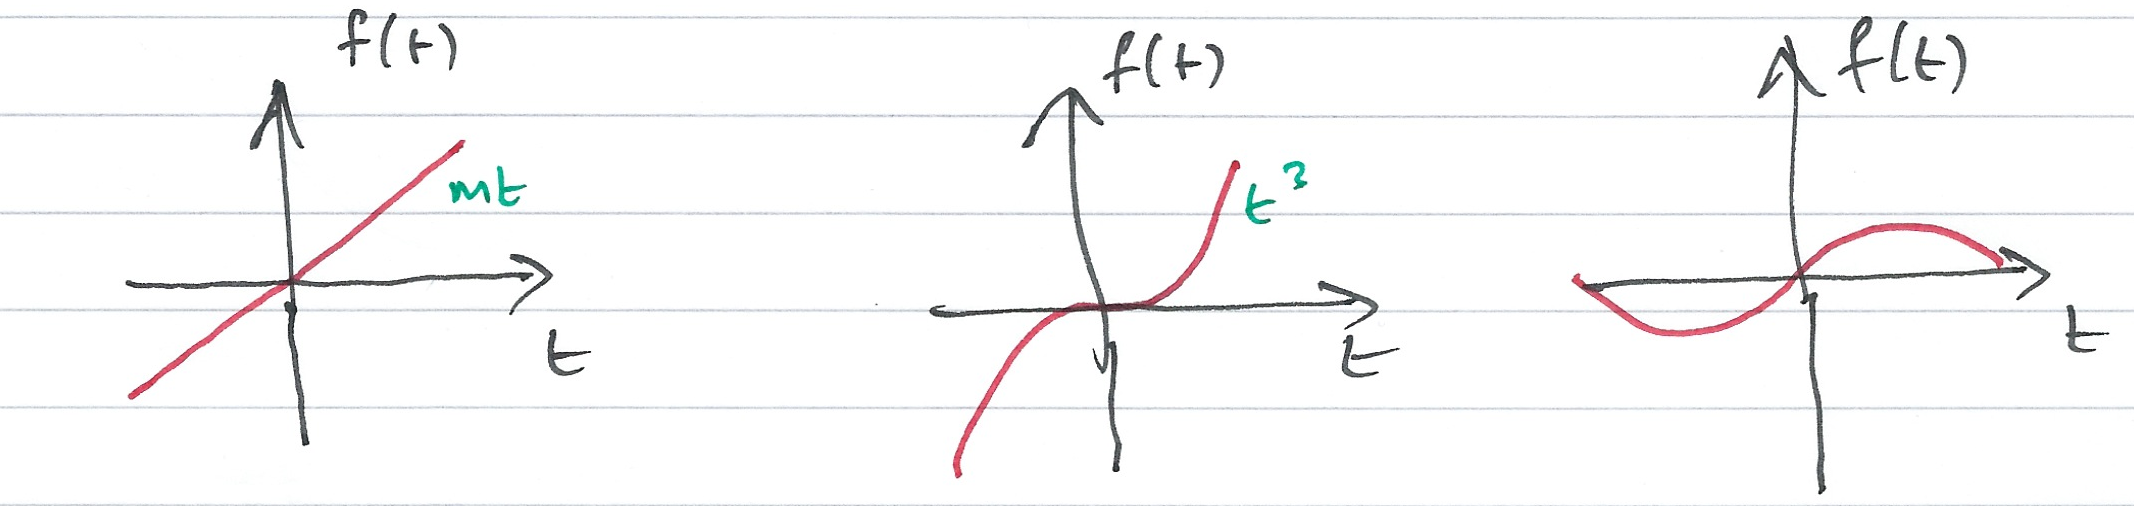 f(t)
mt
t
f(t)
t³
t
f(t)
t